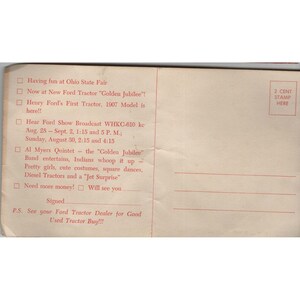 Having fun at Ohio State Fair
Now at New Ford Tractor "Golden Jubilee"!
Henry Ford's First Tractor, 1907 Model is
here!!
Hear Ford Show Broadcast WHKC-610 kc
Aug. 28 — Sept. 2, 1:15 and 3 P. M.;
Sunday, August 30, 2:15 and 4:15
Al Myers Quintet — the "Golden Jubilee"
Band entertains, Indians whoop it up —
Pretty girls, cute costumes, square dances,
Diesel Tractors and a "Jet Surprise"
Need more money! Will see you
Signed
P.S. See your Ford Tractor Dealer for Good
Used Tractor Buy!!!
2 CENT
STAMP
HERE